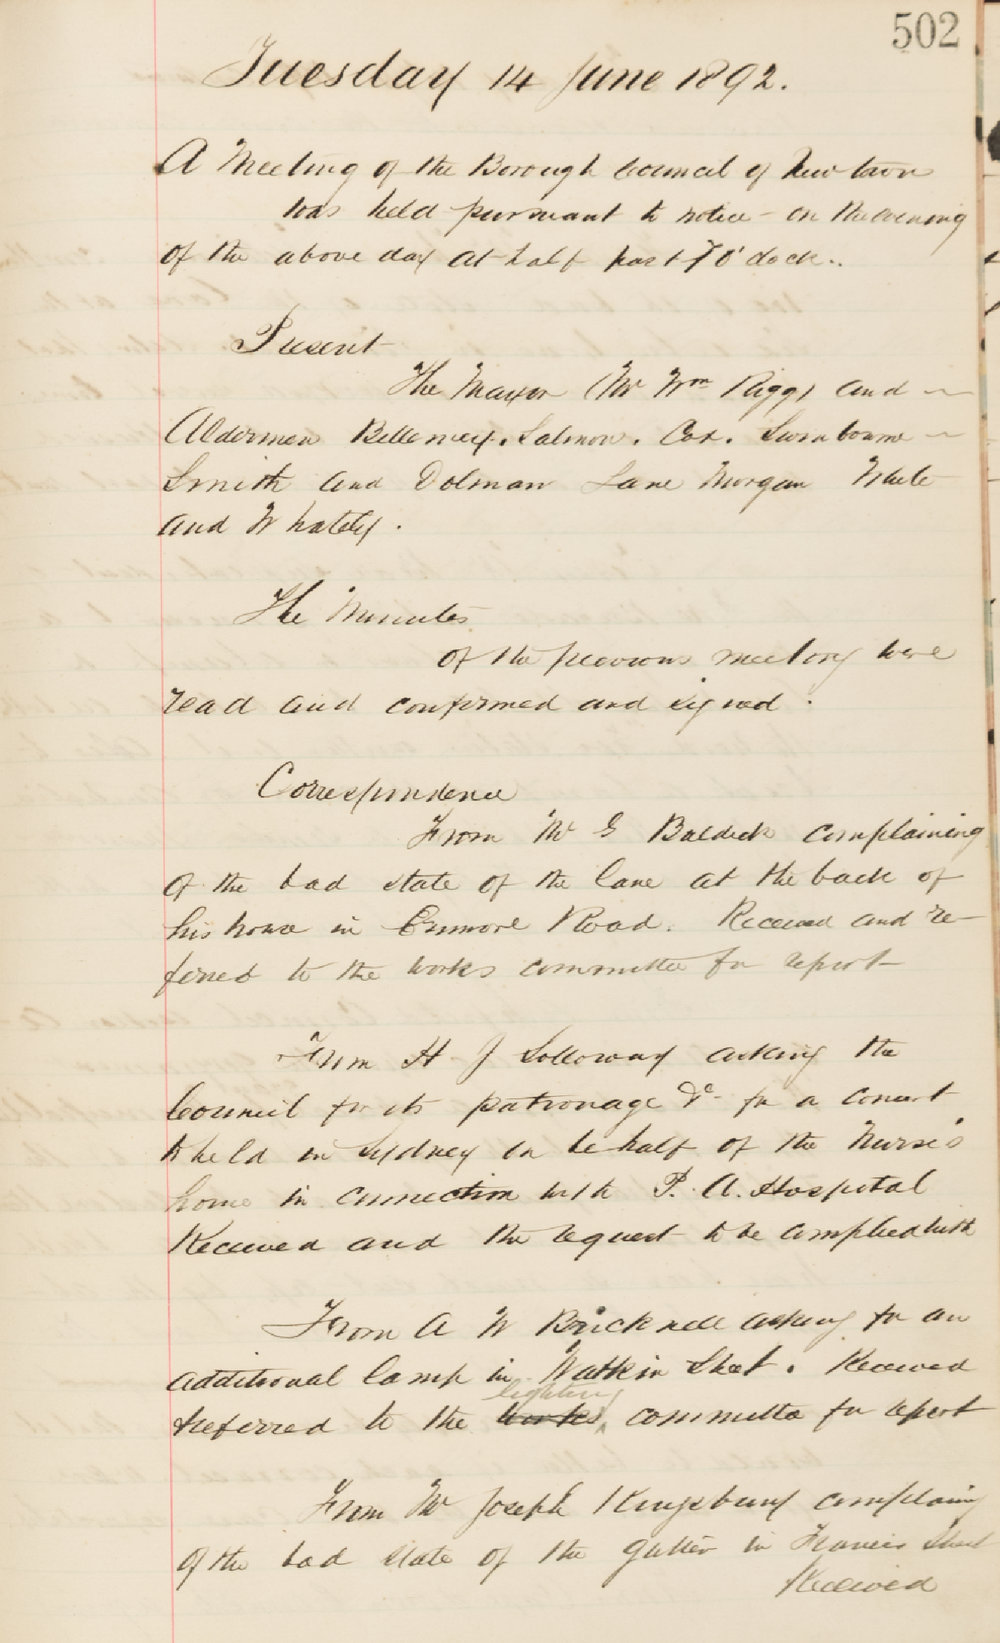 502
Tuesday 14 June 1892.
A Meeting of the Borough Council of Newtown
was held pursuant to notice - on the evening
of the above day at half past 7 O'clock..
Present
The Mayor (Mr Wm Rigg) and
Aldermen Bellemey. Salmon. Cox. Swinbourne
Smith and Dolman Lane Morgan White
and Whately.
The Minutes
of the previous meeting were
read and confirmed and signed.
Correspondence
From Mr G Baldick complaining
of the bad state of the lane at the back of
his house in Enmore Road. Received and re-
ferred to the works committee for report
From H J Solloway asking the
Council for its patronage &c for a concert
to held in Sydney on behalf of the Nurse's
home in connection with P. A. Hospital
Received and the request to be complied with
From A W Bricknell asking for an
additional lamp in Watkin Street. Received
& referred to the works lighting committee for report
From Mr Joseph Kingsbury complaing
of the bad state of the gutter in Francis Street
Received